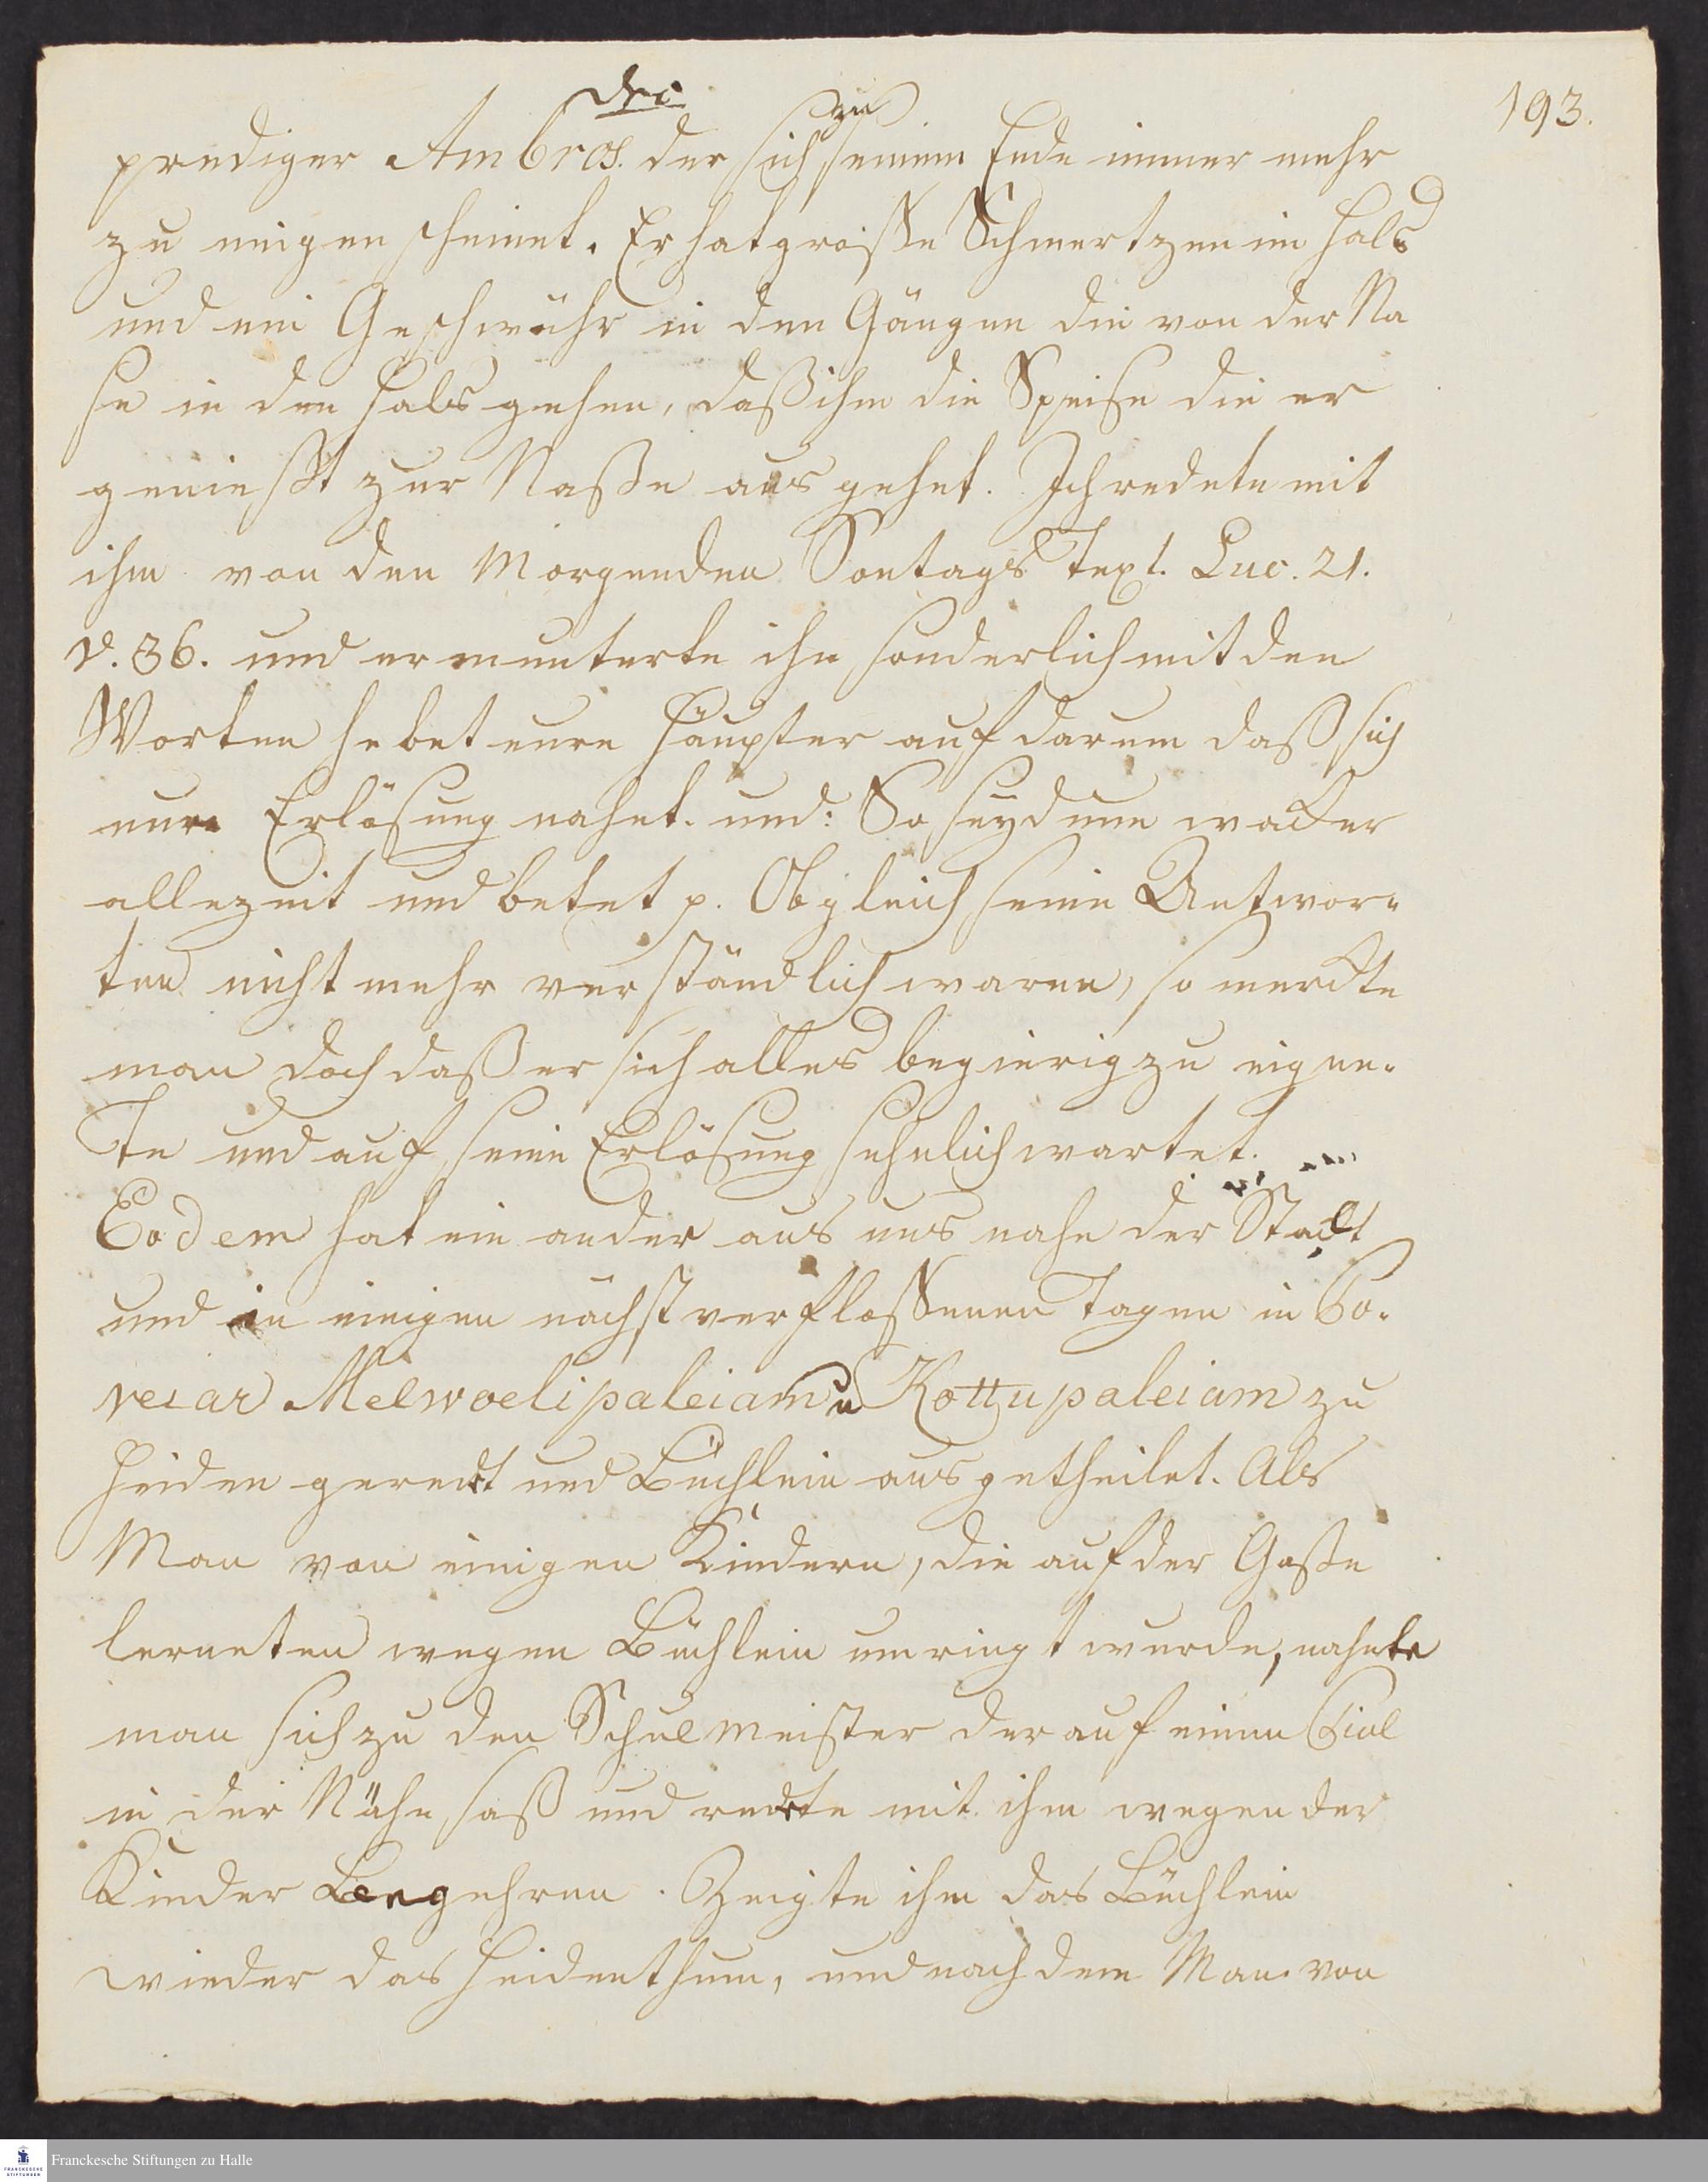 193.
Dec
zu
prediger Ambros. der sich seinem Ende immer mehr
zu neigen scheinet. Er hat große Schmertzen im Hals
und ein Geschwühr in den Gängen die von der Na
se in den Hals gehen, daß ihm die Speise die er
genießt zur Naße aus gehet. Ich redete mit
ihm von den Morgenden Sontags Text. Luc. 21.
v. 36. und ermunterte ihn sonderlich mit den
Worten hebet eure Häupter auf darum daß sich
eure Erlösung nahet. und: So seyd nun wacker
allezeit und betet p. Obgleich seine Antwor-
ten nicht mehr verständlich waren, so merckte
man doch daß er sich alles begierig zu eigne-
te und auf seine Erlösung sehnlich wartet.
Eodem hat ein ander aus uns nahe der Stadt
und in einigen nächst verfloßenen Tagen in Bo-
reiar Melwoelipaleiam u Kottupaleiam zu
Heiden geredt und Büchlein ausgetheilet. Als
Man von einigen Kindern, die auf der Gaße
lerneten wegen Büchlein umringt wurde, nahete
man sich zu den Schulmeister der auf einem
in der Nähe saß und redte mit ihm wegen der
Kinder Begehren. Zeigte ihm das Büchlein
wieder das Heidenthum, und nach dem Man von
Franckesche Stiftungen zu Halle
FRANCKESCHE
STIFTUNGEN